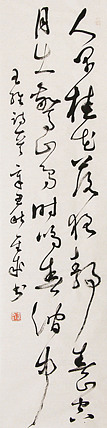 人闲桂花落夜静春山空
月出惊山鸟时鸣春涧中
王维诗 辛丑秋 书